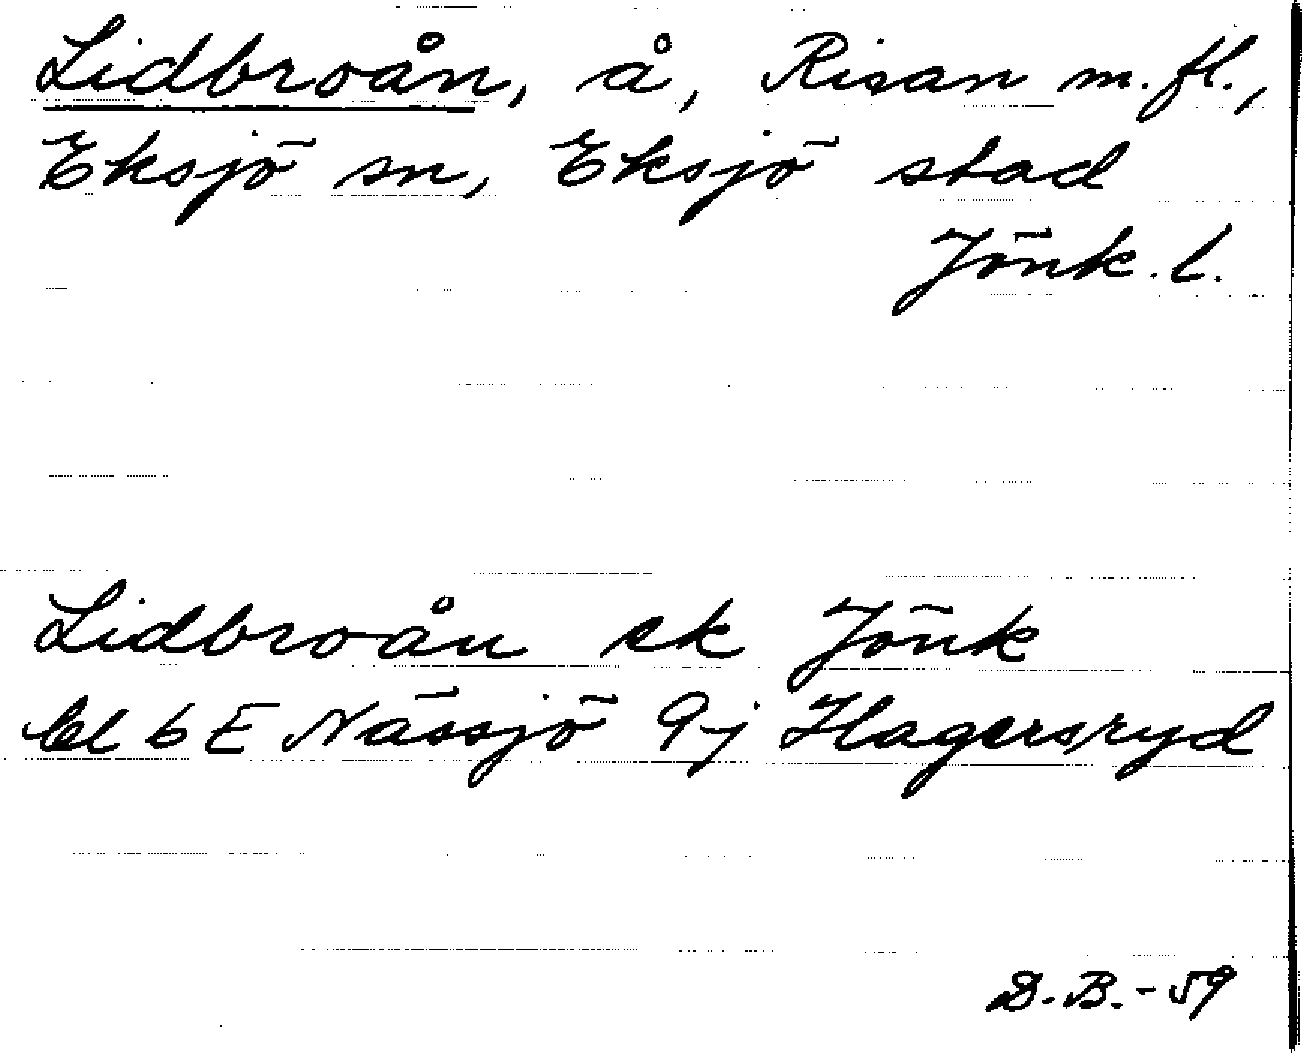 Lidbroån, å, Risan m.fl.,
Eksjö sn, Eksjö stad
Jönk.l.
Lidbroån ek Jönk
bl 6 E Nässjö 9j Hagersryd
D.B.-59